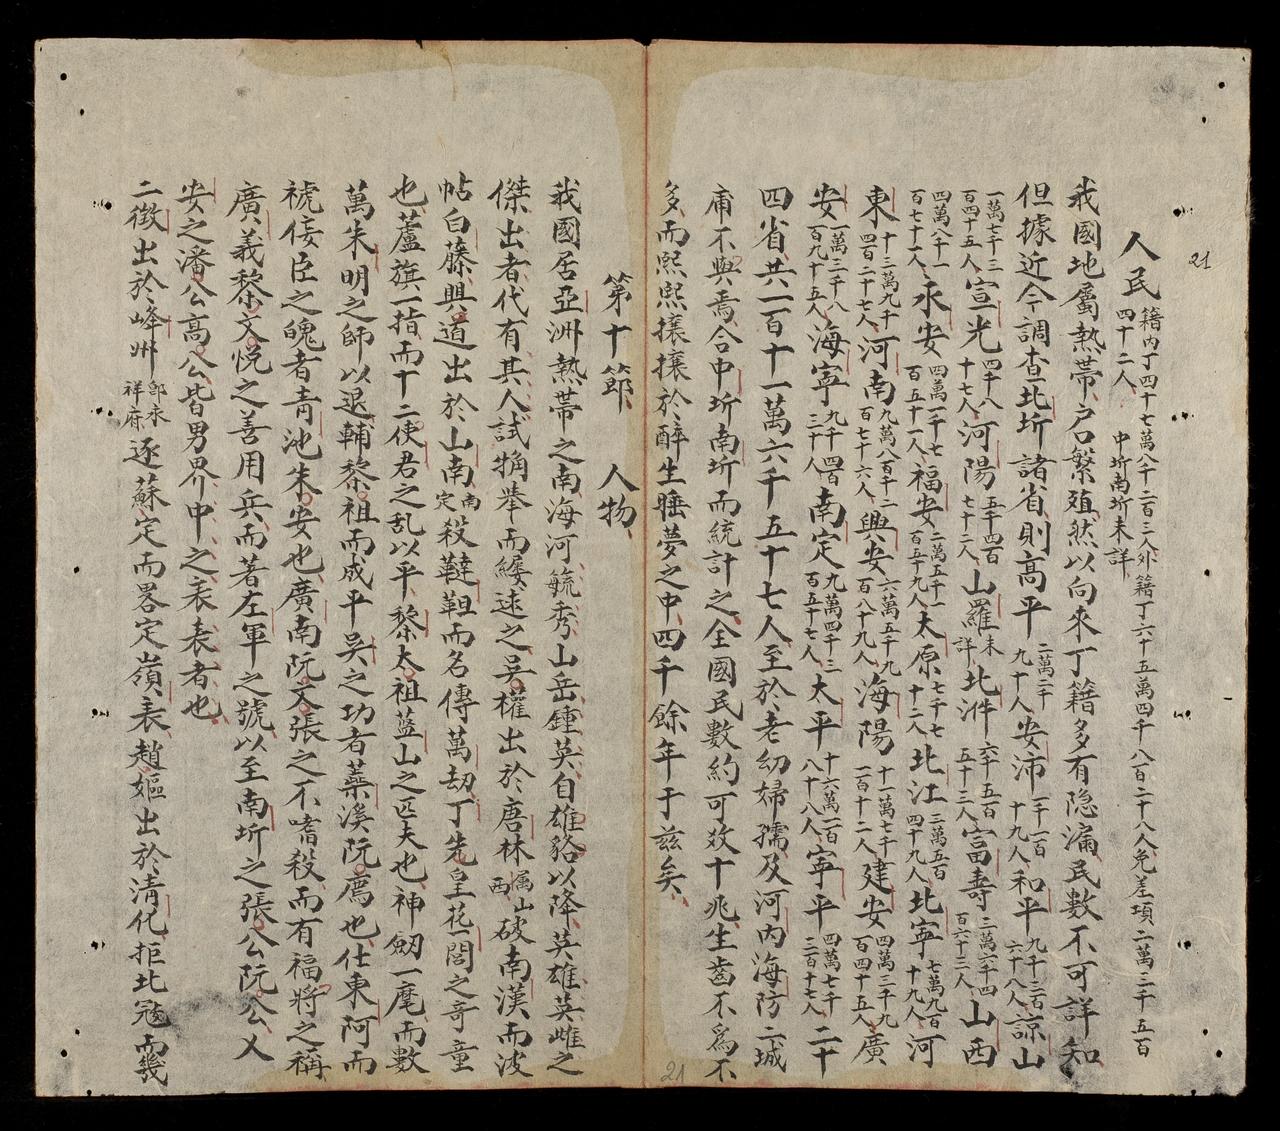 21
人民 籍內丁四十七萬八千二百三人外籍丁六十五萬四千八百二十八人免差項二萬三千五百四十二人 中圻南圻未詳
我國地屬熱帶戶口繁殖然以向來丁籍多有隐漏民數不可詳知
但據近今調查北圻諸省則高平 二萬二千九十人 安沛 一千一百十九人 和平 九千三百六十八人 諒山
一萬七千三百四十五人 宣光 四千八十七人 河陽 五千四百七十二人 山羅 未詳 北㳥 六千五百五十三人 富壽 三萬六千四百六十二人 山西
四萬八千一百七十一人 永安 四萬一千七百五十一人 福安 二萬五千一百五十九人 太原 七千七十二人 北江 三萬五百四十九人 北寧 七萬九百十九人 河
東 十三萬九千四百二十七人 河南 九萬八百千二百七十六人 興安 六萬五千九百八十九人 海陽 十一萬七千一百十二人 建安 四萬三千九百四十五人 廣
安 一萬三千八百九十五人 海寧 九千四百三十人 南定 九萬四千三百五十七人 太平 十六萬一百八十八人 寧平 四萬七千二百十七人 二十
四省共一百十一萬六千五十七人至於老幼婦孺及河內海防二城
庯不與焉合中圻南圻而統計之全國民數約可攷十兆生齒不爲不
多而熙熙攘攘於醉生睡夢之中四千餘年于茲矣
第十節 人物
我國居亞洲熱帶之南海河毓秀山岳鍾英自雄貉以降英雄英雌之
傑出者代有其人試觕举而縷述之吳權出於唐林 属山西 破南漢而波
帖白藤興道出於山南 南定 殺韃靼而名傳萬刼丁先皇花閭之奇童
也蘆旗一指而十二使君之乱以平黎太祖藍山之匹夫也神劒一麾而數
萬朱明之師以退輔黎祖而成平吳之功者蘃溪阮廌也仕東阿而
褫侫臣之魄者青池朱安也廣南阮文張之不嗜殺而有福將之稱
廣義黎文悅之善用兵而著左軍之號以至南圻之張公阮公乂
安之潘公高公皆男界中之表表者也
二徵出於峰州 郎永祥府 逐蘇定而畧定嶺表趙嫗出於清化拒北寇而幾
21